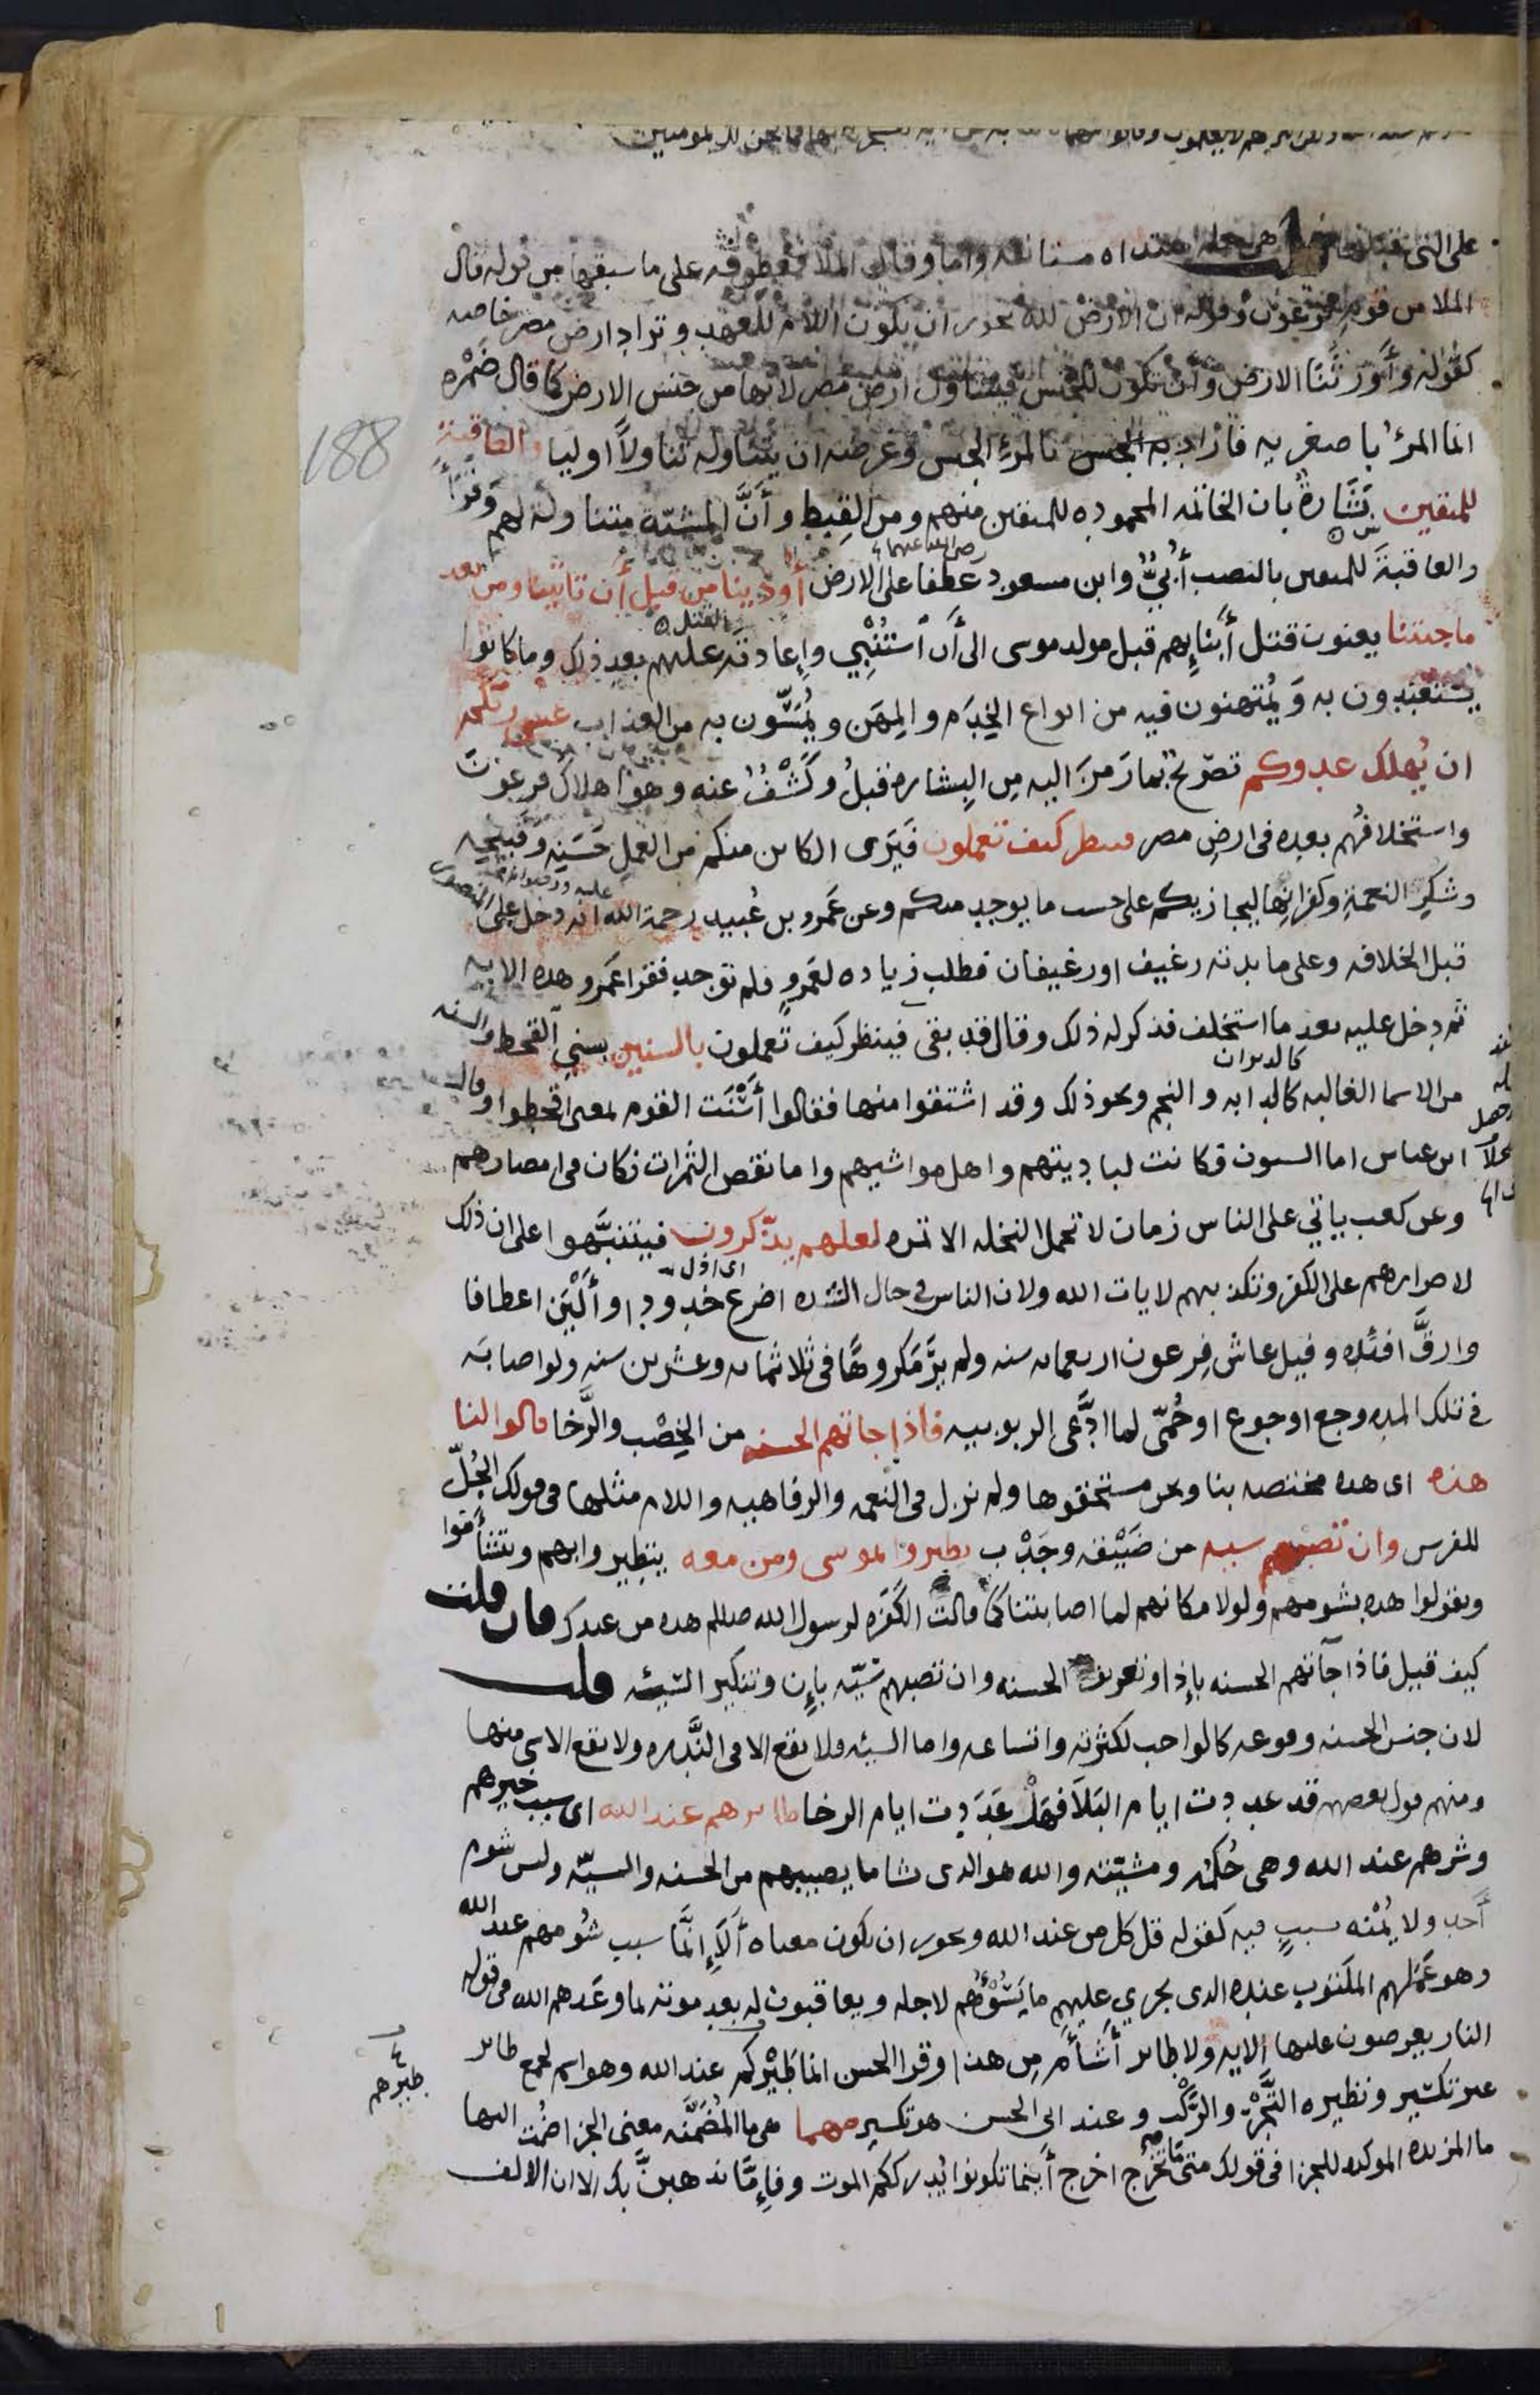 على التى قبلها هى جمله مبتداه مستانفه واما وقال الملا فمعطوفه على ما سبقها من قوله قال
الملا من قوم فرعون وقوله ان الارض لله يجوز ان يكون اللام للعهد وتراد ارض مصر خاصه
كقوله وأورثنا الارض وأن تكون للجنس فيتناول ارض مصر لانها من جنس الارض كما قال ضمره
انما المرؤ باصغريه فاراد به الجنس بالمرء الجنس وغرضه ان يتناوله تناولاً اوليا والعاقبة
188
للمتقين بشارة بان الخاتمه المحموده للمتقين منهم ومن القبط وأنّ المشيّة متناولة لهم وقرأ
والعاقبةَ للمتقين بالنصب أبيّ وابن مسعود رضى الله عنهما عطفا على الارض أوذينا من قبل أن تاتينا ومن بعد
ما جيتنا يعنون قتل أبنايهم قبل مولد موسى الى أن استنبي وإعادته عليهم بعد ذلك وما كانوا
القتل
يستعبدون به ويُمتهنون فيه من انواع الخِدَم والمِهَن ويُمسّون به من العذاب عسى ربكم
ان يُهلك عدوكم تصريح بما رَمَزَ اليه من البشاره قبلُ وكَشْفٌ عنه وهو اهلاك فرعون
واستخلافهم بعده فى ارض مصر فينظر كيف تعملون فيَرَى الكاين منكم من العمل حَسَنِه وقبيحِه
وشكرِ النعمة وكفرانِها ليجازيكم على حسب ما يوجد منكم وعن عَمرو بن عُبيد رحمة الله عليه انه دخل على المنصور
قبل الخلافه وعلى مايدته رغيف اورغيفان فطلب زياده لعَمرو فلم توجد فقرا عَمرو هذه الايه
ثم دخل عليه بعد ما استخلف فذكر له ذلك وقال قد بقى فينظر كيف تعملون بالسنين بسني القحط والسنه
من الاسما الغالبه كالدابه والنجم ونحو ذلك وقد اشتقوا منها فقالوا أسْنَتَ القوم بمعنى اقحطوا وقال
كالدبران
ابن عباس اما السنون فكانت لباديتهم واهل مواشيهم واما نقص الثمرات فكان فى امصارهم
وعن كعب ياتي على الناس زمان لا تحمل النخله الا تمره لعلهم يذّكرون فيتنبّهوا على ان ذلك
لاصرارهم على الكفر وتكذيبهم لايات الله ولان الناس فى حال الشده اضرع خدودا وألْيَن اعطافا
اى اذل
وارقّ افئده وقيل عاش فرعون اربعمايه سنه ولم يرَ مكروهًا فى ثلاثمايه وعشرين سنه ولو اصابه
فى تلك المده وجع او جوع او حُمّى لما ادّعى الربوبيه فاذا جاتهم الحسنه من الخِصْب والرّخا قالوا لنا
هذه اى هذه مختصه بنا ونحن مستحقوها ولم نزل فى النعمه والرفاهيه واللام مثلها فى قولك الجُلّ
للفرس وان تصبهم سييه من ضَيْقه وجَدْب يطيروا بموسى ومن معه يتطيروا بهم ويتشأموا
ويقولوا هذه بشومهم ولولا مكانهم لما اصابتنا كما قالت الكَفَره لرسول الله صللم هذه من عندك فان قلت
كيف قيل فاذا جآتهم الحسنه بإذا وتعريف الحسنه وان تصبهم سيّه بإن وتنكير السّيئه قلت
لان جنس الحسنه وقوعه كالواجب لكثرته واتساعه واما السيئه فلا تقع الا فى النّدره ولا يقع الا شى منها
ومنه قول بعضهم قد عددت ايام البَلآ فهل عَدَدت ايام الرخا طايرهم عند الله اى سبب خيرهم
وشرهم عند الله وهى حُكمه ومشيّته والله هو الذى شا ما يصيبهم من الحسنه والسيّه وليس شوم
أحد ولا يُمْنه بسببٍ فيه كقوله قل كل من عند الله ويجوز ان يكون معناه ألَا إنّما سبب شُومهم عند الله
وهو عَمَلهم المكتوب عنده الذى يجري عليهم ما يَسُوؤُهم لاجله ويعاقبون له بعد موته بما وعَدهم الله فى قوله
النار يعرضون عليها الايه ولا طاير أشأم من هذا وقرا الحسن انما طَيْركم عند الله وهو اسم لجمع طاير
طيرهم
غير تكسير ونظيره التَّجْرُ والرَّكْب وعند ابى الحسن هو تكسير مهما هى ما المُضمّنه معنى الجزا ضُمت اليها
ما المزيده الموكده للجزا فى قولك متى ما تخرج اخرج أينما تكونوا يدرككم الموت وفإمّا نذهبنّ بك الا ان الالف